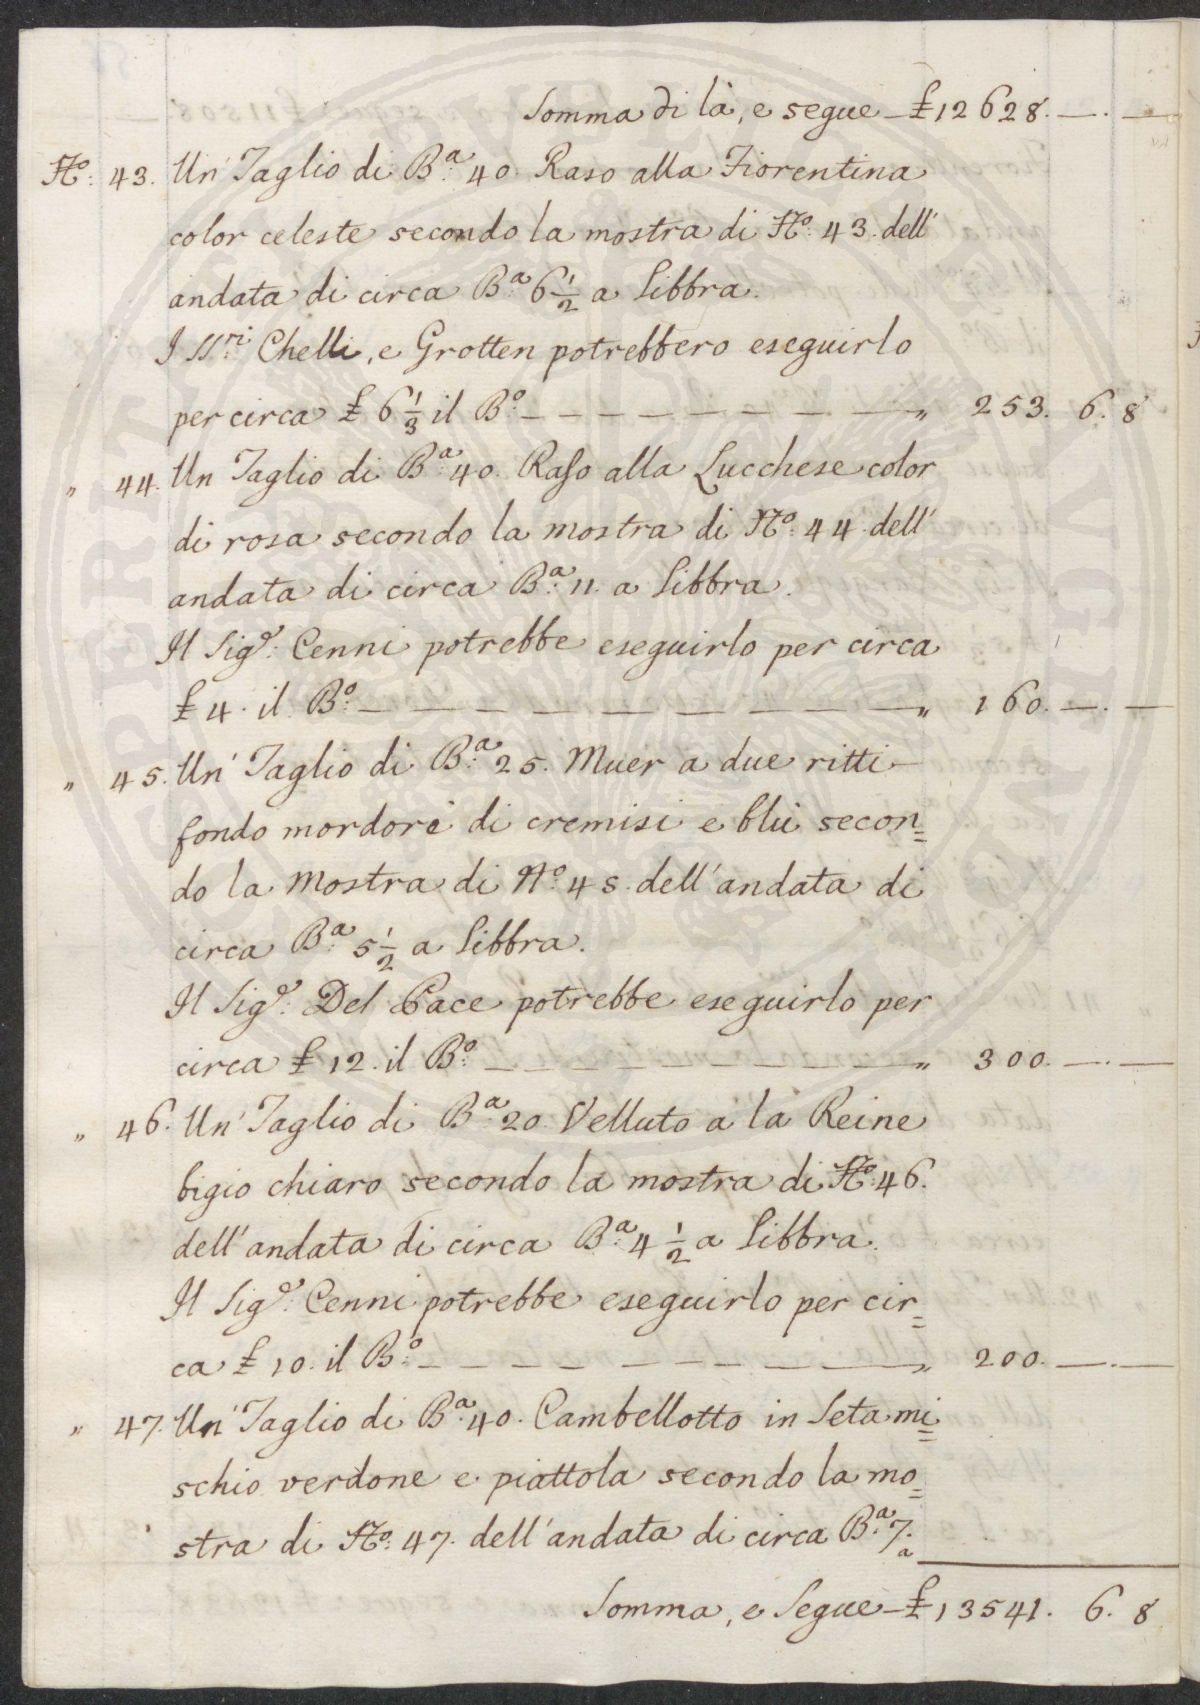 Somma di là, e segue £ 12628. —. —
No: 43. Un' Taglio di Ba: 40. Raso alla Fiorentina
color celeste secondo la mostra di No: 43. dell'
andata di circa Ba: 6 1/2 a Libbra.
I SSri: Chelli, e Grotten potrebbero eseguirlo
per circa £ 6 1/3 il Bo: — — — — — — — — " 253. 6. 8
" 44. Un Taglio di Ba: 40. Raso alla Lucchese color
di rosa secondo la mostra di No: 44 dell'
andata di circa Ba: 11. a Libbra.
Il Sigr: Cenni potrebbe eseguirlo per circa
£ 4. il Bo: — — — — — — — — — " 160. —. —
" 45. Un' Taglio di Ba: 25. Muer a due ritti
fondo mordorè di cremisi e blù secon=
do la Mostra di No: 45. dell'andata di
circa Ba: 5 1/2 a Libbra.
Il Sigr: Del Pace potrebbe eseguirlo per
circa £ 12. il Bo: — — — — — — — — " 300. —. —
" 46. Un' Taglio di Ba: 20. Velluto a la Reine
bigio chiaro secondo la mostra di No: 46.
dell'andata di circa Ba: 4 1/2 a Libbra.
Il Sigr: Cenni potrebbe eseguirlo per cir=
ca £ 10. il Bo: — — — — — — — — — " 200. —. —
" 47. Un' Taglio di Ba: 40. Cambellotto in Seta mi=
schio verdone e piattola secondo la mo=
stra di No: 47. dell'andata di circa Ba: 7. a
Somma, e Segue £ 13541. 6. 8